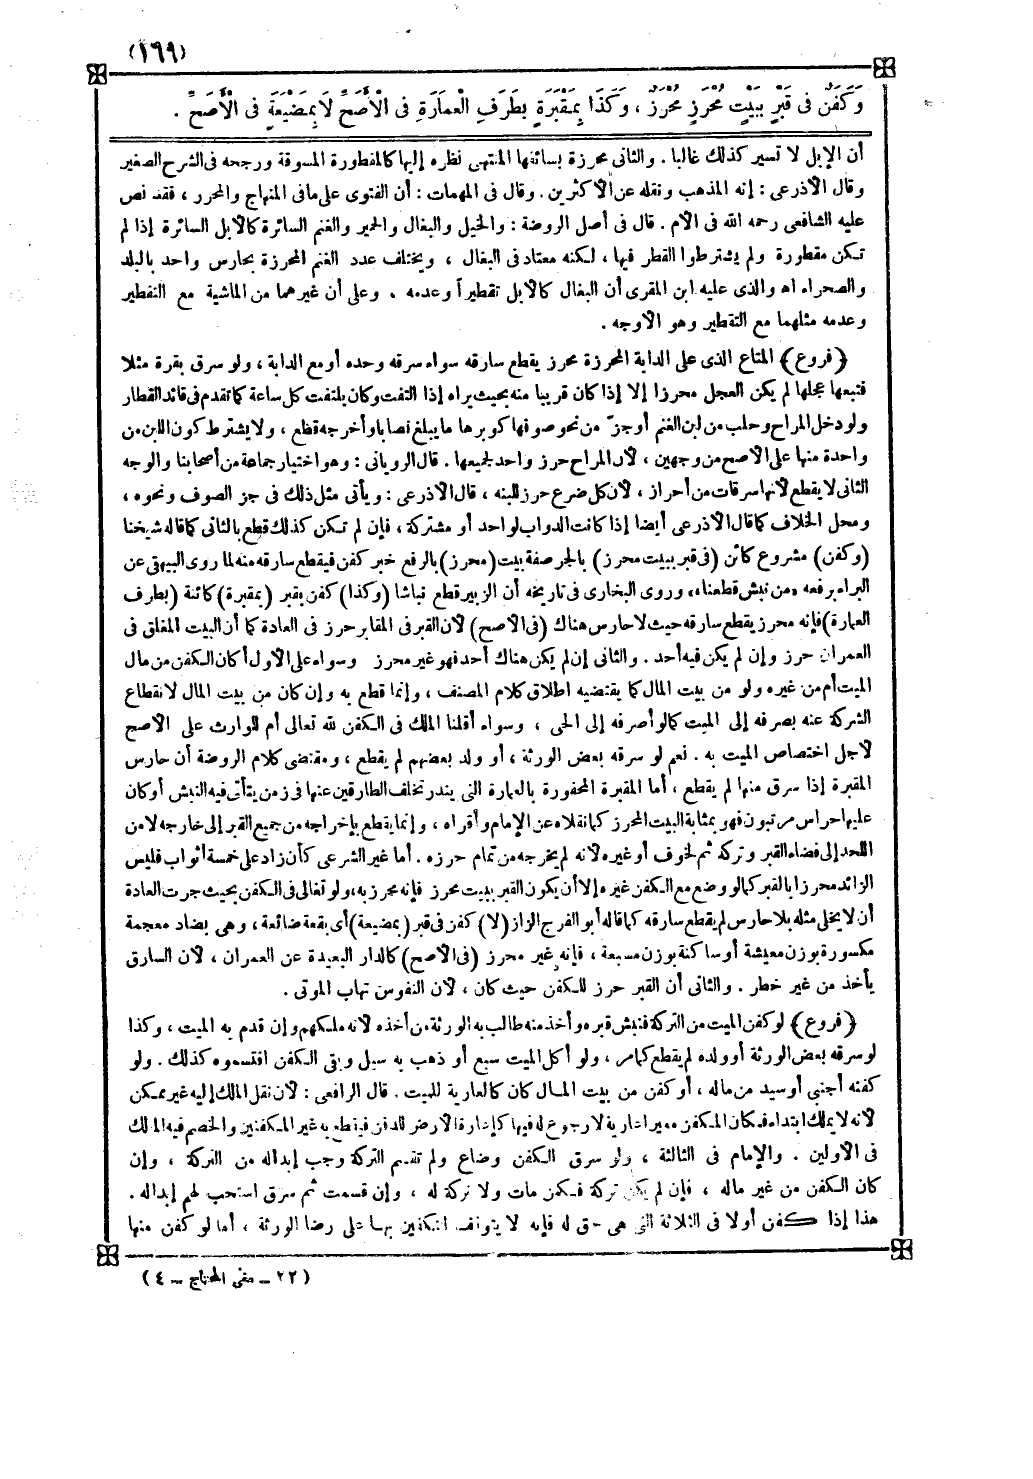 (١٦٩)
وَكَفَنٌ فى قَبْرٍ بِبَيْتٍ مُحْرَزٍ مُحْرَزٌ ، وَكَذَا بِمَقْبَرَةٍ بِطَرَفِ الْعِمَارَةِ فى الْأَصَحِّ لَا بِمَضْيَعَةٍ فى الْأَصَحِّ .
أن الإبل لا تسير كذلك غالبا . والثانى محرزة بسائقها المنتهى نظره إليها كالمقطورة المسوقة ورجحه فى الشرح الصغير
وقال الأذرعى : إنه المذهب ونقله عن الأكثرين . وقال فى المهمات : أن الفتوى على مافى المنهاج والمحرر ، فقد نص
عليه الشافعى رحمه الله فى الأم . قال فى أصل الروضة : والخيل والبغال والحمير والغنم السائرة كالابل السائرة إذا لم
تكن مقطورة ولم يشترطوا القطر فيها ، لكنه معتاد فى البغال ، ويختلف عدد الغنم المحرزة بحارس واحد بالبلد
والصحراء اه والذى عليه ابن المقرى أن البغال كالابل تقطيراً وعدمه . وعلى أن غيرهما من الماشية مع التقطير
وعدمه مثلهما مع التقطير وهو الأوجه .
(فروع) المتاع الذى على الدابة المحرزة محرز يقطع سارقه سواء سرقه وحده أو مع الدابة ، ولو سرق بقرة مثلا
فتبعها عجلها لم يكن العجل محرزا إلا إذا كان قريبا منه بحيث يراه إذا التفت وكان يلتفت كل ساعة كما تقدم فى قائد القطار
ولو دخل المراح وحلب من لبن الغنم أو جزّ من نحو صوفها كوبرها ما يبلغ نصابا وأخرجه قطع ، ولا يشترط كون اللبن من
واحدة منها على الأصح من وجهين ، لأن المراح حرز واحد لجميعها . قال الرويانى : وهو اختيار جماعة من أصحابنا والوجه
الثانى لا يقطع لأنها سرقات من أحراز ، لأن كل ضرع حرز للبنه ، قال الأذرعى : ويأتى مثل ذلك فى جز الصوف ونحوه ،
ومحل الخلاف كما قال الأذرعى أيضا إذا كانت الدواب لواحد أو مشتركة ، فإن لم تكن كذلك قطع بالثانى كما قاله شيخنا
(وكفن) مشروع كائن (فى قبر ببيت محرز) بالجر صفة بيت (محرز) بالرفع خبر كفن فيقطع سارقه منه لما روى البيهقى عن
البراء برفعه «من نبش قطعناه» وروى البخارى فى تاريخه أن الزبير قطع نباشا (وكذا) كفن بقبر (بمقبرة) كائنة (بطرف
العمارة) فإنه محرز يقطع سارقه حيث لا حارس هناك (فى الأصح) لأن القبر فى المقابر حرز فى العادة كما أن البيت المغلق فى
العمران حرز وإن لم يكن فيه أحد . والثانى إن لم يكن هناك أحد فهو غير محرز وسواء على الأول أكان الكفن من مال
الميت أم من غيره ولو من بيت المال كما يقتضيه اطلاق كلام المصنف ، وإنما قطع به وإن كان من بيت المال لانقطاع
الشركة عنه بصرفه إلى الميت كما لو أصرفه إلى الحى ، وسواء أقلنا الملك فى الكفن لله تعالى أم للوارث على الأصح
لأجل اختصاص الميت به . نعم لو سرقه بعض الورثة ، أو ولد بعضهم لم يقطع ، ومقتضى كلام الروضة أن حارس
المقبرة إذا سرق منها لم يقطع ، أما المقبرة المحفورة بالعمارة التى يندر تخلف الطارقين عنها فى زمن يتأتى فيه النبش أو كان
عليها حراس مرتبون فهو بمثابة البيت المحرز كما نقلاه عن الإمام وأقراه ، وإنما يقطع بإخراجه من جميع القبر إلى خارجه لا من
اللحد إلى فضاء القبر وتركه ثم لخوف أو غيره لأنه لم يخرجه من تمام حرزه . أما غير الشرعى كأن زاد على خمسة أثواب فليس
الزائد محرزا بالقبر كما لو وضع مع الكفن غيره إلا أن يكون القبر ببيت محرز فإنه محرز به ، ولو تغالى فى الكفن بحيث جرت العادة
أن لا يخلى مثله بلا حارس لم يقطع سارقه كما قاله أبو الفرج الزاز (لا) كفن فى قبر (بمضيعة) أى بقعة ضائعة ، وهى بضاد معجمة
مكسورة بوزن معيشة أو ساكنة بوزن مسبعة ، فإنه غير محرز (فى الأصح) كالدار البعيدة عن العمران ، لأن السارق
يأخذ من غير خطر . والثانى أن القبر حرز للكفن حيث كان ، لأن النفوس تهاب الموتى .
(فروع) لو كفن الميت من التركة فنبش قبره وأخذ منه طالب به الورثة من أخذه لأنه ملكهم وإن قدم به الميت ، وكذا
لو سرقه بعض الورثة أو ولده لم يقطع كما مر ، ولو أكل الميت سبع أو ذهب به سيل وبقى الكفن اقتسموه كذلك . ولو
كفنه أجنبى أو سيد من ماله ، أو كفن من بيت المال كان كالعارية للميت . قال الرافعى : لأن نقل الملك إليه غير ممكن
لأنه لا يملك ابتداء فكان المكفن معير اعارية لا رجوع له فيها كإعارة الأرض للدفن فيقطع به غير المكفنين والخصم فيه المالك
فى الأولين . والإمام فى الثالثة ، ولو سرق الكفن وضاع ولم تقسم التركة وجب إبداله من التركة ، وإن
كان الكفن من غير ماله ، فإن لم يكن تركة فكمن مات ولا تركة له ، وإن قسمت ثم سرق استحب لهم إبداله .
هذا إذا كفن أولا فى الثلاثة التى هى حق له فإنه لا يتوقف التكفين بها على رضا الورثة ، أما لو كفن منها
(٢٢ – مغنى المحتاج – ٤)